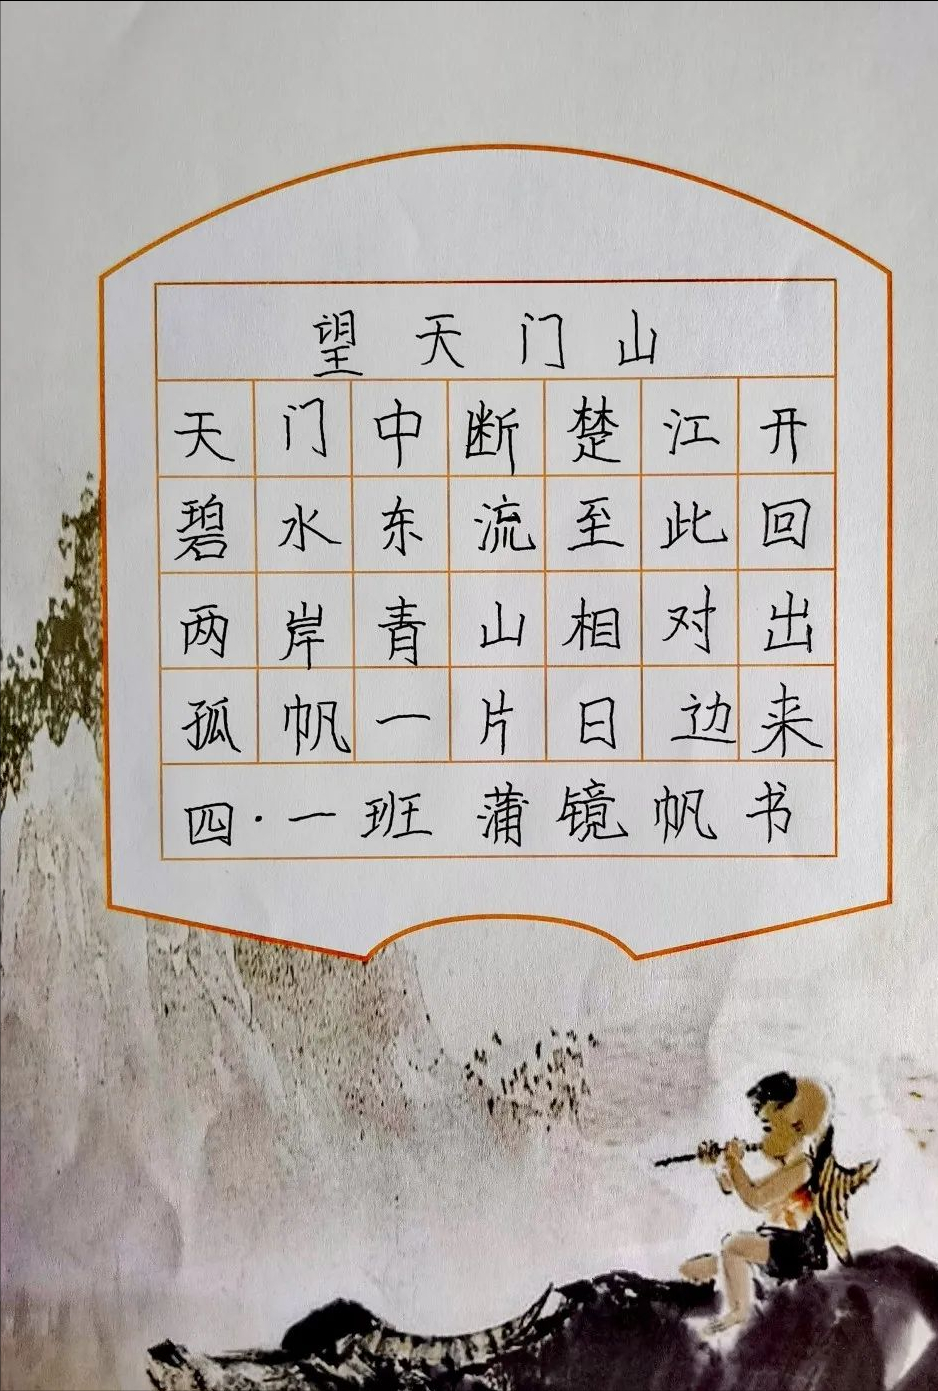 望天门山
天门中断楚江开
碧水东流至此回
两岸青山相对出
孤帆一片日边来
四·一班 蒲镜帆书